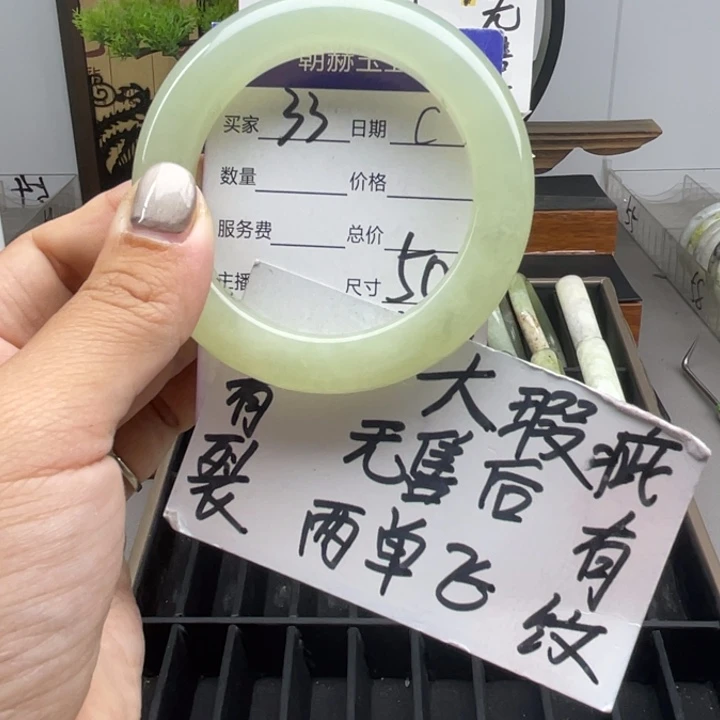 无售
朝赫玉
买家 33 日期 C
数量 价格
服务费 总价
主播 尺寸 50
有裂
大瑕疵
无售后
有纹
两单飞